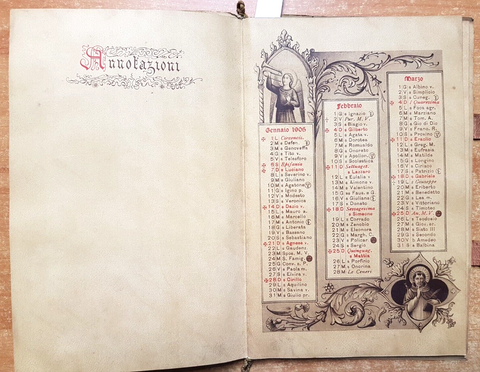 Annotazioni
Gennaio 1906
1 L Circoncis.
2 M s Defen.
3 M s Genoveffa
4 G s Tito v.
5 V s Telesforo
6 S Epifania
7 D s Luciano
8 L s Severino v.
9 M s Giuliano
10 M s Agatone
11 G s Igino p.
12 V s Modesto
13 S s Veronica
14 D s Dazio v.
15 L s Mauro a.
16 M s Marcello
17 M s Antonio
18 G s Liberata
19 V s Bassano
20 S s Sebastiano
21 D s Agnese v.
22 L s Gaudenz.
23 M Spos. M. V.
24 M S. Famig.
25 G Conv. s. P.
26 V s Paola m.
27 S s Elvira v.
28 D s Cirillo
29 L s Aquilino
30 M s Savina v.
31 M s Giulio pr.
Febbraio
1 G s Ignazio
2 V Pur. M. V.
3 S s Biagio v.
4 D s Gilberto
5 L s Agata
6 M s Dorotea
7 M s Romualdo
8 G s Onorato
9 V s Apollon.
10 S s Scolastica
11 D Settuages.
s Lazzaro
12 L s Eulalia v.
13 M s Ahnino
14 M s Valentino
15 G ss Faus. e G.
16 V s Giuliana
17 S s Donato
18 D Sessagesima
s Simeone
19 L s Corrado
20 M s Zenobio
21 M s Eleonora
22 G s Margh. C.
23 V s Policar.
24 S s Sergio
25 D Quinquag.
s Mattia
26 L s Porfirio
27 M s Onorina
28 M Le Ceneri
Marzo
1 G s Albino v.
2 V s Simplicio
3 S s Cuneg.
4 D I Quaresima
5 L s Foca agr.
6 M s Marziano
7 M s Tom. A.
8 G s Gio. di Dio
9 V s Franc. R.
10 S s Provino
11 D s Eraclio
12 L s Greg. M.
13 M s Eufrasia
14 M s Matilde
15 G s Longino
16 V s Ciriaco
17 S s Patrizio
18 D s Gabriele
19 L s Giuseppe
20 M s Eriberto
21 M s Benedetto
22 G s Las m.
23 V s Vittoriano
24 S s Timoteo
25 D An. M. V.
26 L s Teodoro
27 M s Giov. er.
28 M s Sisto III
29 G s Secondo
30 V b Amadeo
31 S s Balbina